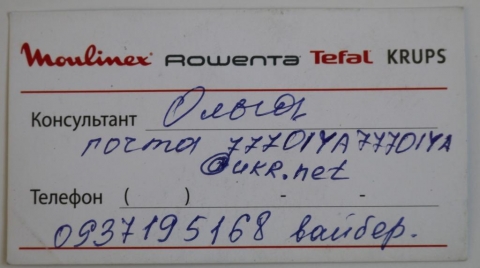 Moulinex Rowenta Tefal KRUPS
Консультант Ольга
почта 77701YA77701YA
@ukr.net
Телефон ( ) - -
0937195168 вайбер.